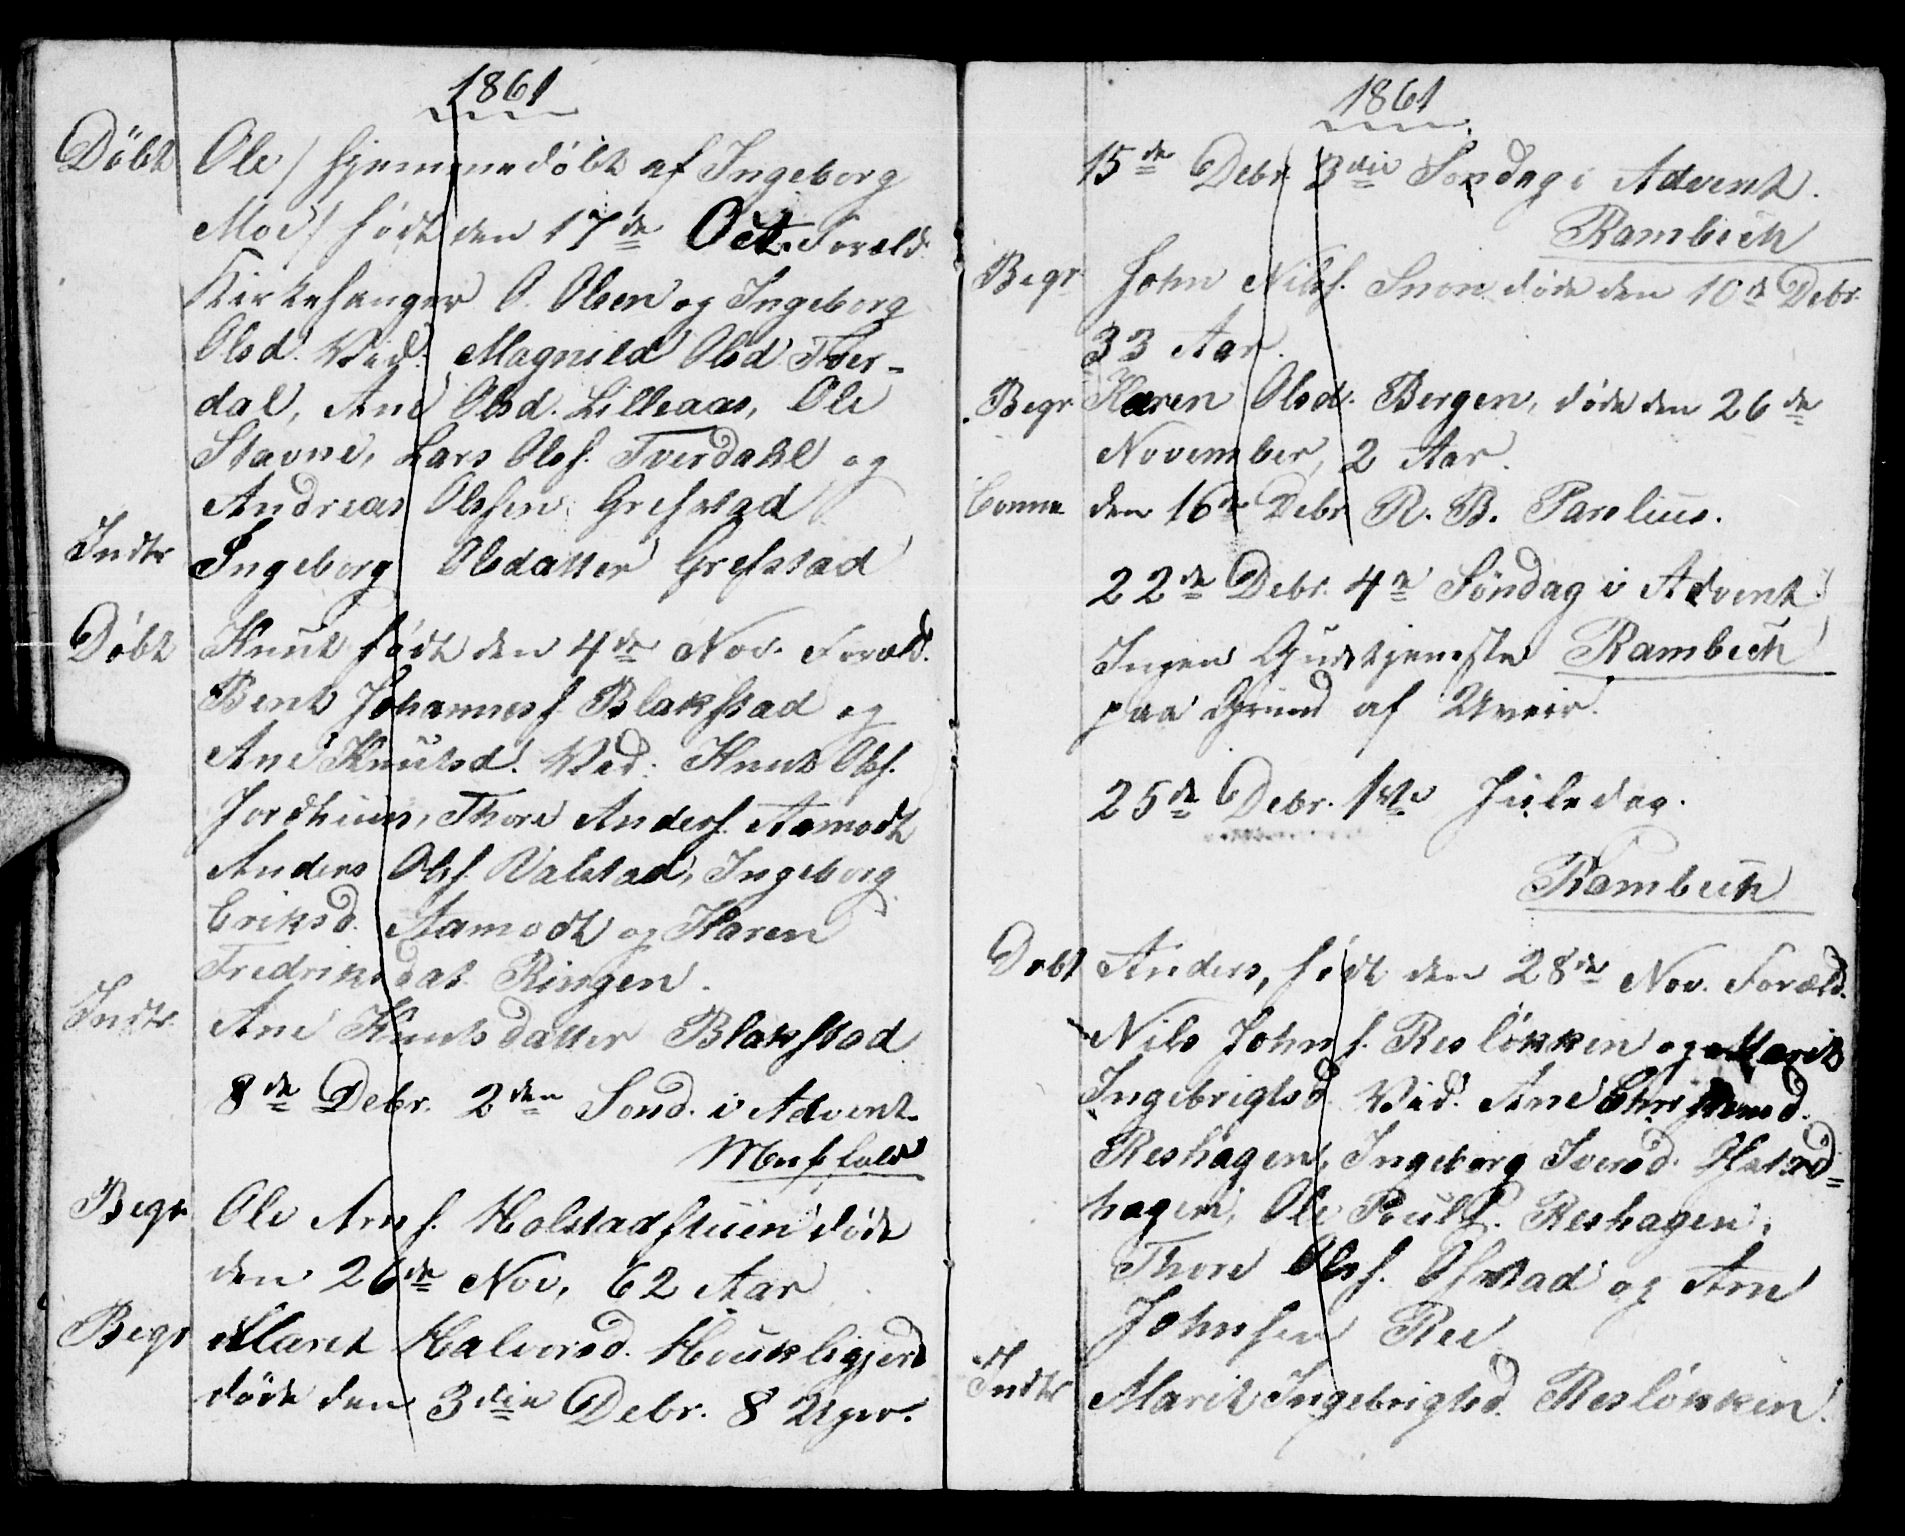 1861
Döbt Ole / hjemmedöbt af Ingeborg
Moe / født den 17de Oct. Foræld.
Kirkesanger O. Olsen og Ingeborg
Olsd. Vid: Magnild Olsd Tver-
dal, Ane Olsd. Lilleaas, Ole
Stavne, Lars Olss. Tverdahl og
Andreas Olssen Grefstad
Indtr Ingeborg Olsdatter Grefstad
Döbt Knut født den 4de Nov. Foræld.
Bent Johanness Blakstad og
Ane Knutsd. Vid: Knut Olss.
Jordhuen, Thore Anderss. Aamodt
Anders Olss. Valstad, Ingeborg
Eriksd. Aamodt og Karen
Fredriksdat Ringen.
Indtr Ane Knutsdatter Blakstad
8de Debr. 2den Sønd. i Advent.
Begr Ole Arns. Holstadstuen døde
den 26de Nov, 62 Aar
Begr Maret Halvorsd.
döde den 3die Debr. 8 Uger.
1861
15de Debr 3die Søndag i Advent.
Rambech
Begr John Nilss. døde den 10de Debr.
33 Aar.
Begr Karen Olsdr. Bergen, døde den 26de
November, 2 Aar.
den 16de Debr R. B. Parelius.
22de Debr. 4de Söndag i Advent.
Ingen Gudstjeneste Rambech
paa Grund af Uveir.
25de Debr. 1ste Juledag.
Rambech
Dobt Anders, født den 28de Nov. Foræld.
Nils Johns. Reslökken og Marit
Ingebrigtsd. Vid. Ane
Reshagen, Ingeborg Iversd.
hagen, Ole Pouls. Reshagen,
Thore Olss. Ofstad og Arne
Johnsen Ree
Indtr Marit Ingebrigtsd. Reslökken.